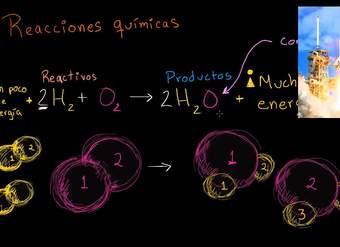 Reacciones químicas
Reactivos
Productos
poco
+ 2H₂ + O₂ → 2H₂O + ¡Much
energ
1 2 → 1
1 2
1 2 2
3